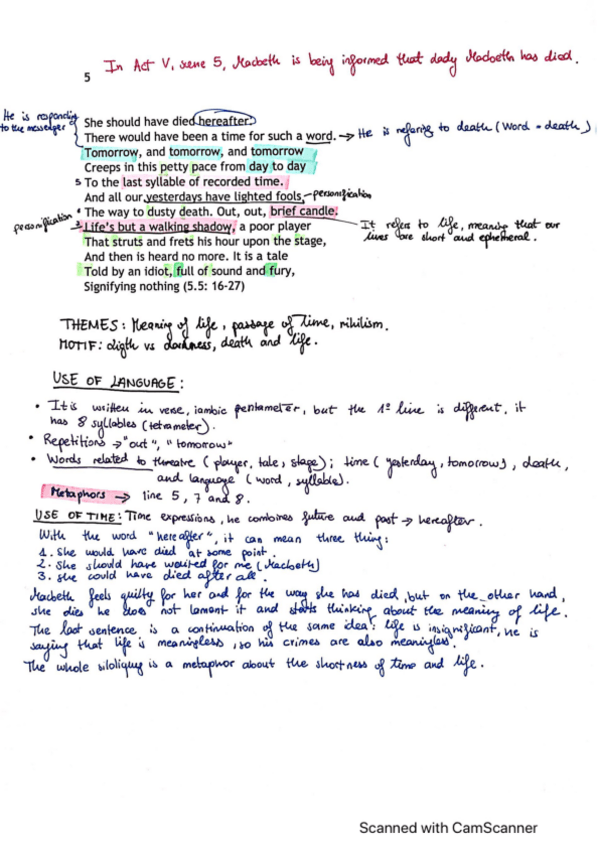 In Act V, scene 5, Macbeth is being informed that Lady Macbeth has died.
5
He is responding
to the messenger
She should have died hereafter.
There would have been a time for such a word. → He is refering to death (Word = death)
Tomorrow, and tomorrow, and tomorrow
Creeps in this petty pace from day to day
5 To the last syllable of recorded time.
And all our yesterdays have lighted fools → personification
The way to dusty death. Out, out, brief candle.
personification
Life's but a walking shadow, a poor player
It refers to life, meaning that our
lives are short and ephemeral.
That struts and frets his hour upon the stage,
And then is heard no more. It is a tale
Told by an idiot, full of sound and fury,
Signifying nothing (5.5: 16-27)
THEMES: Meaning of life, passage of time, nihilism.
MOTIF: ligth vs darkness, death and life.
USE OF LANGUAGE:
• It is written in verse, iambic pentameter, but the 1º line is different, it
has 8 syllables (tetrameter).
• Repetitions → "out", "tomorrow"
• Words related to threatre (player, tale, stage); time (yesterday, tomorrow), death,
and language (word, syllable).
Metaphors → line 5, 7 and 8.
USE OF TIME: Time expressions, he combines future and past → hereafter.
With the word "hereafter", it can mean three thing:
1. She would have died at some point.
2. She should have waited for me (Macbeth)
3. She could have died after all.
Macbeth feels guilty for her and for the way she has died, but on the other hand,
she dies he does not lament it and starts thinking about the meaning of life.
The last sentence is a continuation of the same idea: life is insignificant, he is
saying that life is meaningless, so his crimes are also meaningless.
The whole siloliquy is a metaphor about the shortness of time and life.
Scanned with CamScanner